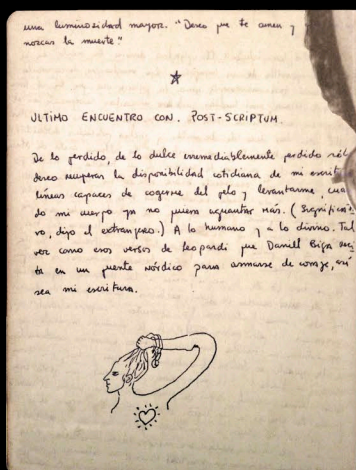 una luminosidad mayor. "Deseo que te amen y
nozcas la muerte."
ULTIMO ENCUENTRO CON. POST-SCRIPTUM.
De lo perdido, de lo dulce irremediablemente perdido sólo
deseo recuperar la disponibilidad cotidiana de mi escritura
líneas capaces de cogerme del pelo y levantarme cuan
do mi cuerpo ya no quiera aguantar más. (Significati
vo, dijo el extranjero.) A lo humano y a lo divino. Tal
vez como esos versos de Leopardi que Daniel Biga reci
ta en un puente nórdico para armarse de coraje, así
sea mi escritura.